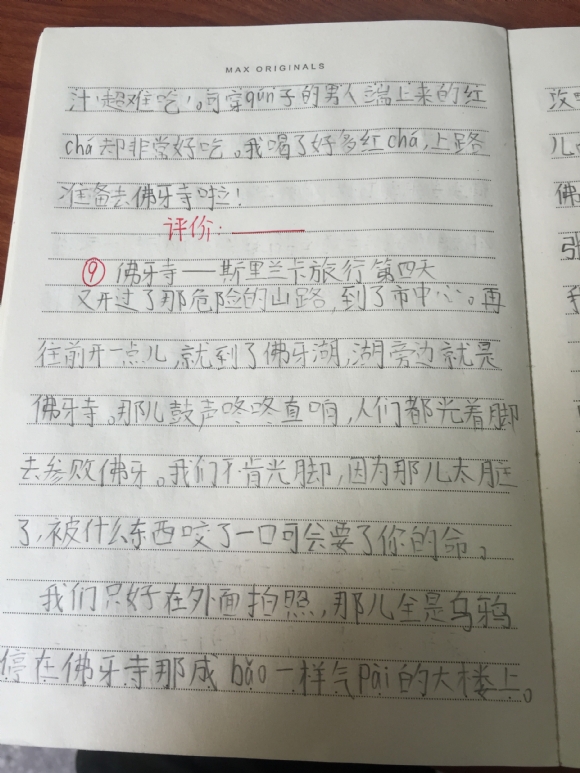 MAX ORIGINALS
汁，超难吃！。可穿qún子的男人端上来的红
chá却非常好吃。我喝了好多红chá，上路
准备去佛牙寺啦！
评价：
⑨ 佛牙寺——斯里兰卡旅行第四天
又开过了那危险的山路，到了市中心。再
往前开一点儿，就到了佛牙湖，湖旁边就是
佛牙寺。那儿鼓声咚咚直响，人们都光着脚
去参败佛牙。我们不肯光脚，因为那儿太脏
了，被什么东西咬了一口可会要了你的命。
我们只好在外面拍照，那儿全是乌鸦
停在佛牙寺那成bǎo一样气pài的大楼上。